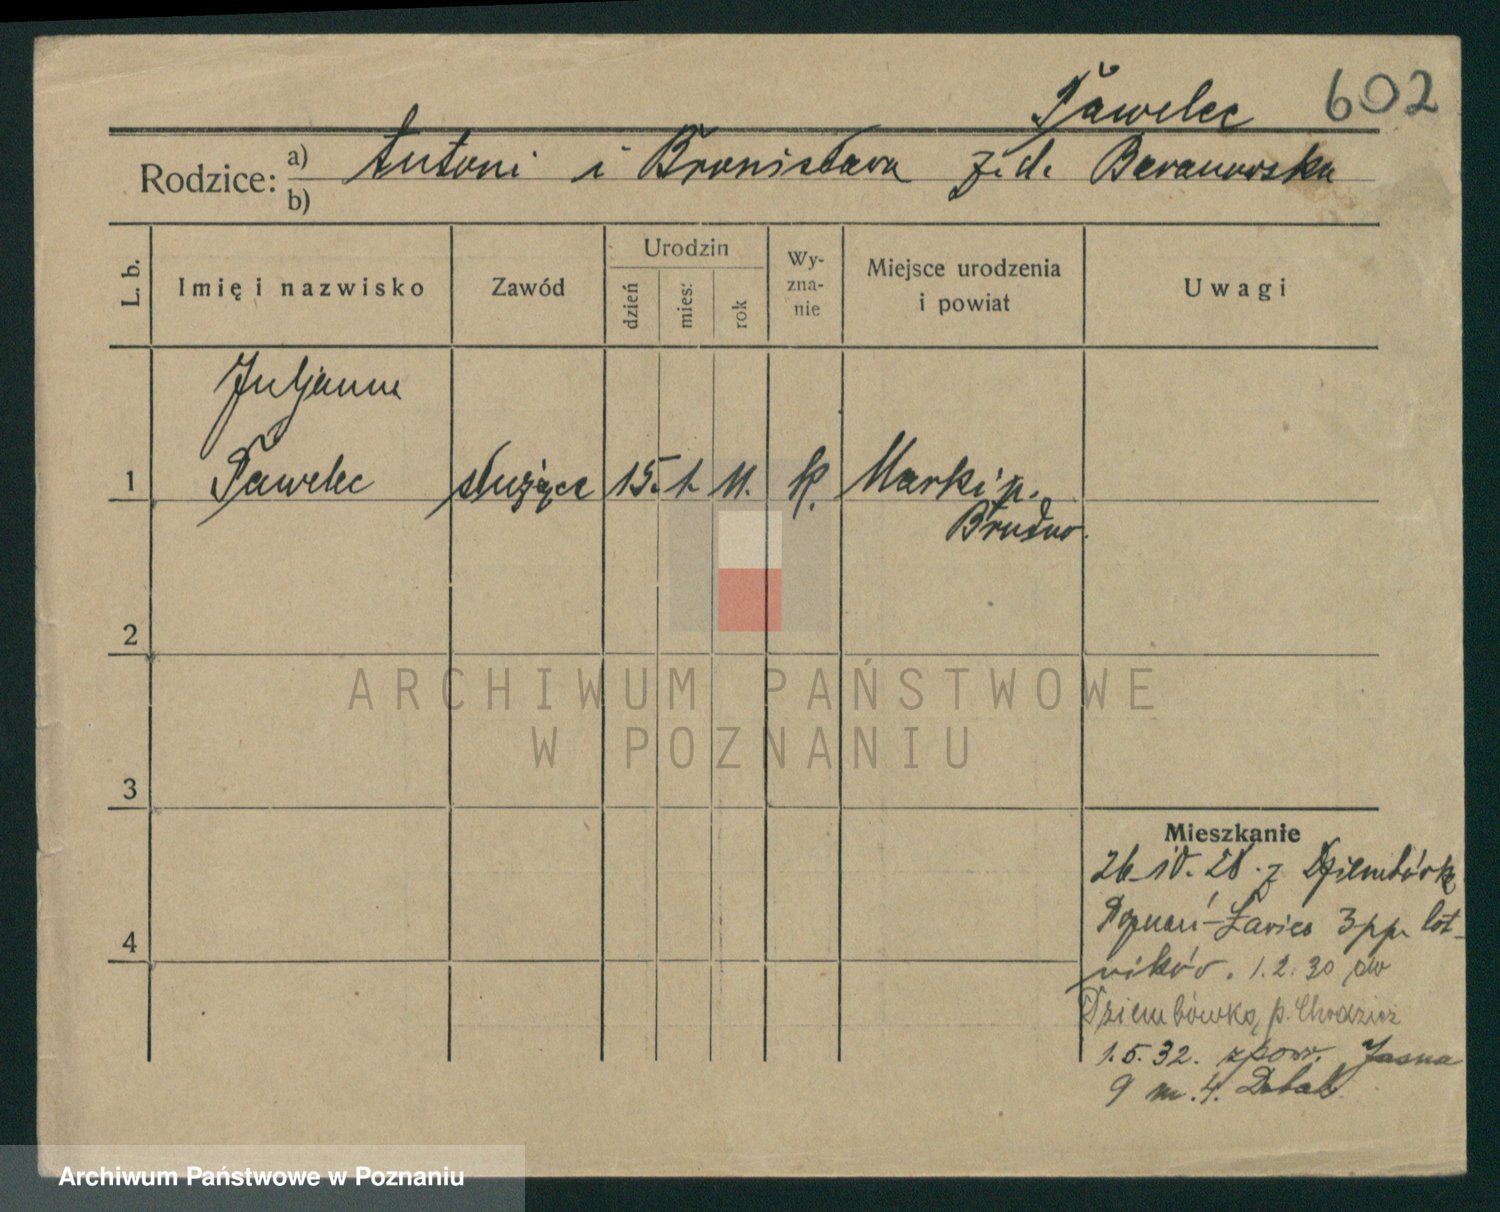 Pawelec 602
Rodzice: a) Antoni i Bronisława z. d. Baranowska
b)
L. b.
Imię i nazwisko
Zawód
Urodzin
dzień
mies:
rok
Wy-
zna-
nie
Miejsce urodzenia
i powiat
Uwagi
Juljanna
1 Pawelec służąca 15. 1. 11. k. Marki p.
Brudno.
2
ARCHIWUM PAŃSTWOWE
W POZNANIU
3
Mieszkanie
26-10. 28. z Dziembówka
Poznań-Ławica 3 pp. lot-
4
ników. 1.2.30 do
Dziembówka, p. Chodzież
1.5.32. z pow. Jasna
9 m. 4.
Archiwum Państwowe w Poznaniu